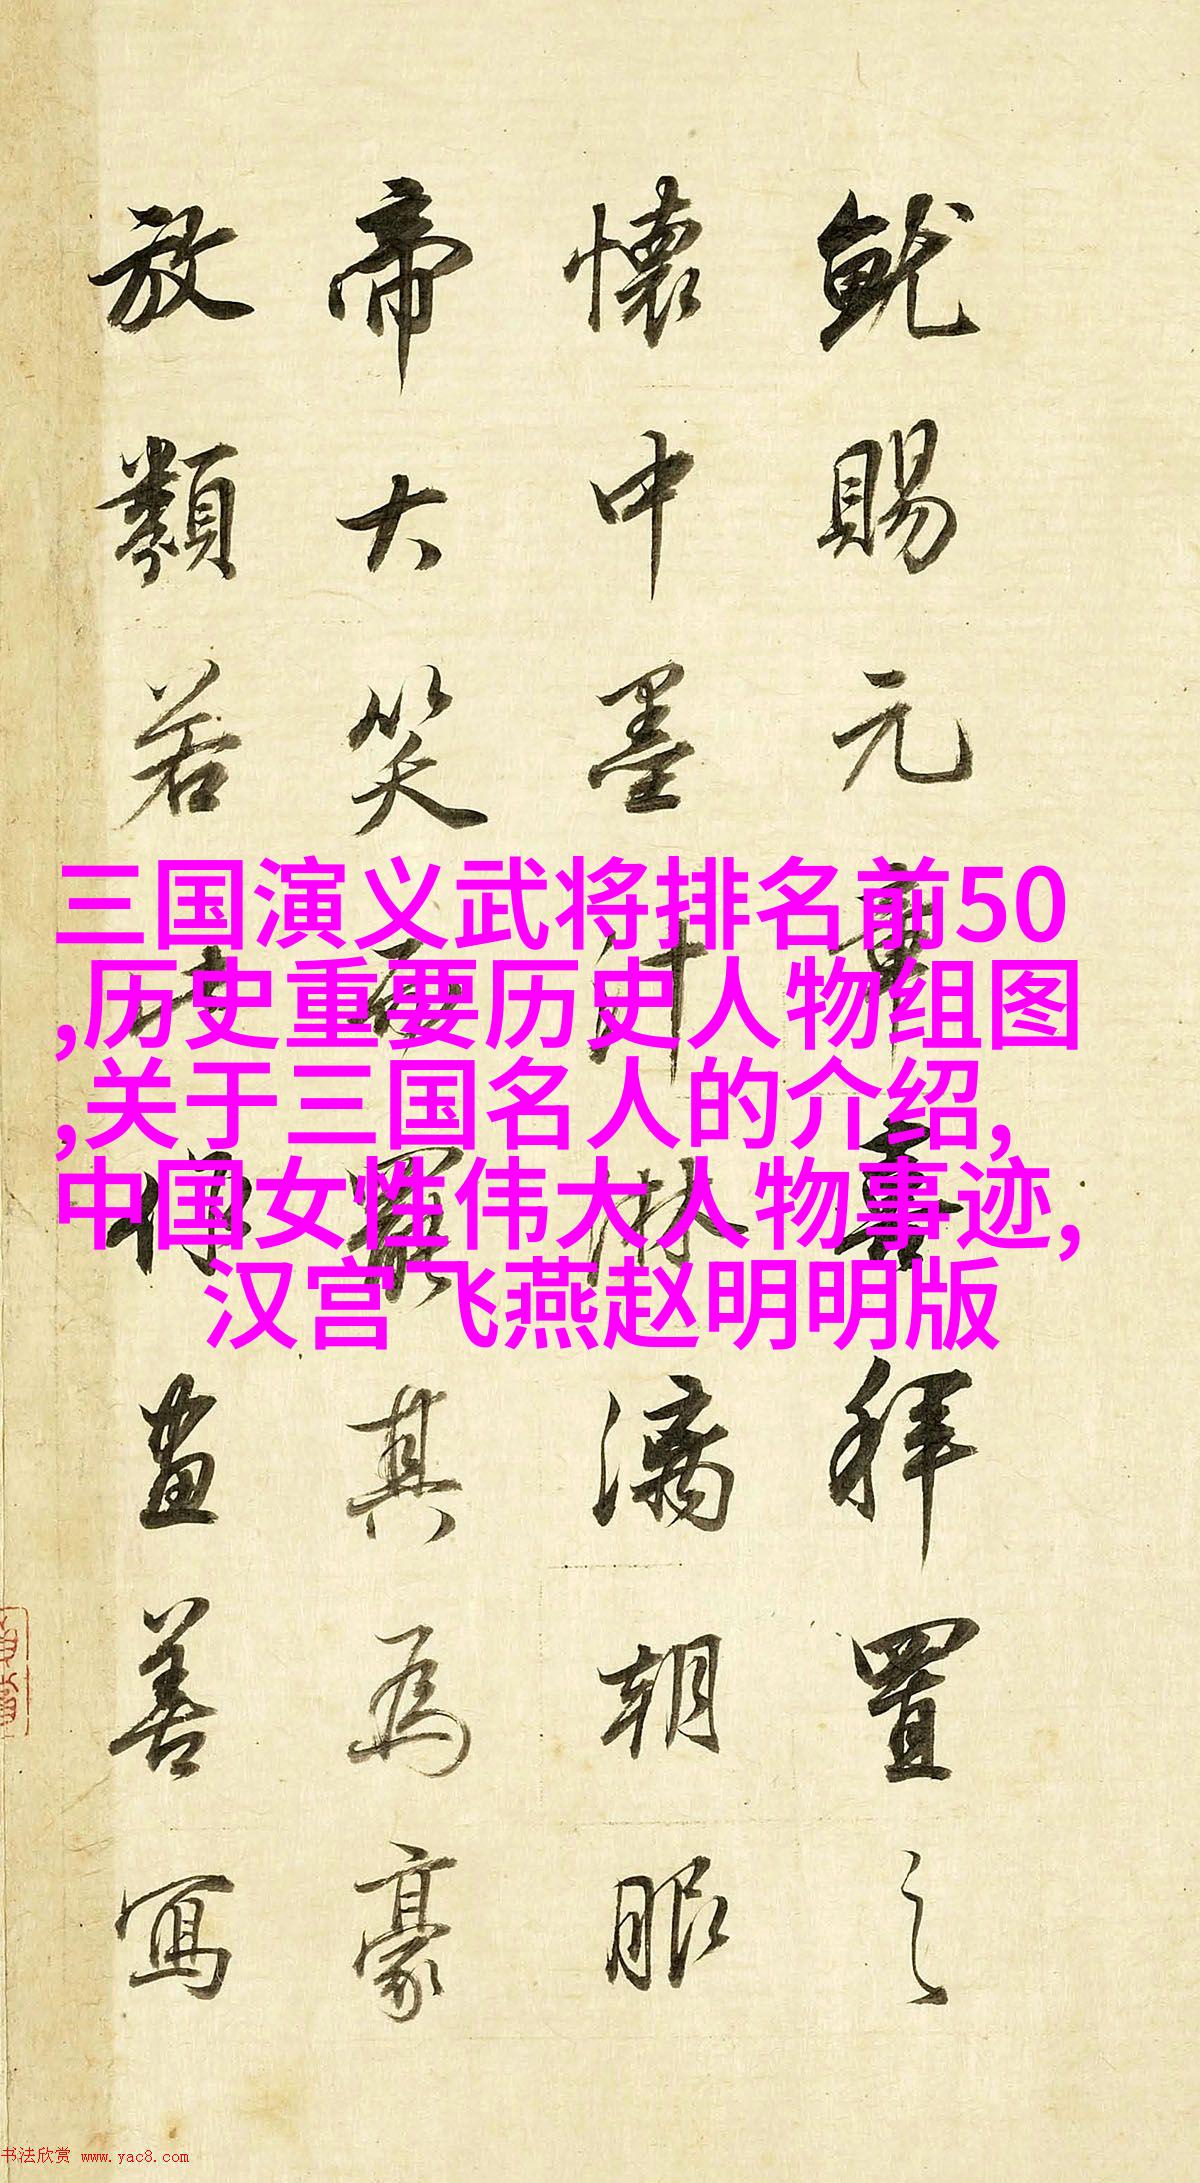 就賜元章喜拜置之
懷中墨汁淋漓朝服
帝大笑而罷其為豪
放類若此畫善寫
三国演义武将排名前50
,历史重要历史人物组图
,关于三国名人的介绍,
中国女性伟大人物事迹,
汉宫飞燕赵明明版
书法欣赏 www.yac8.com